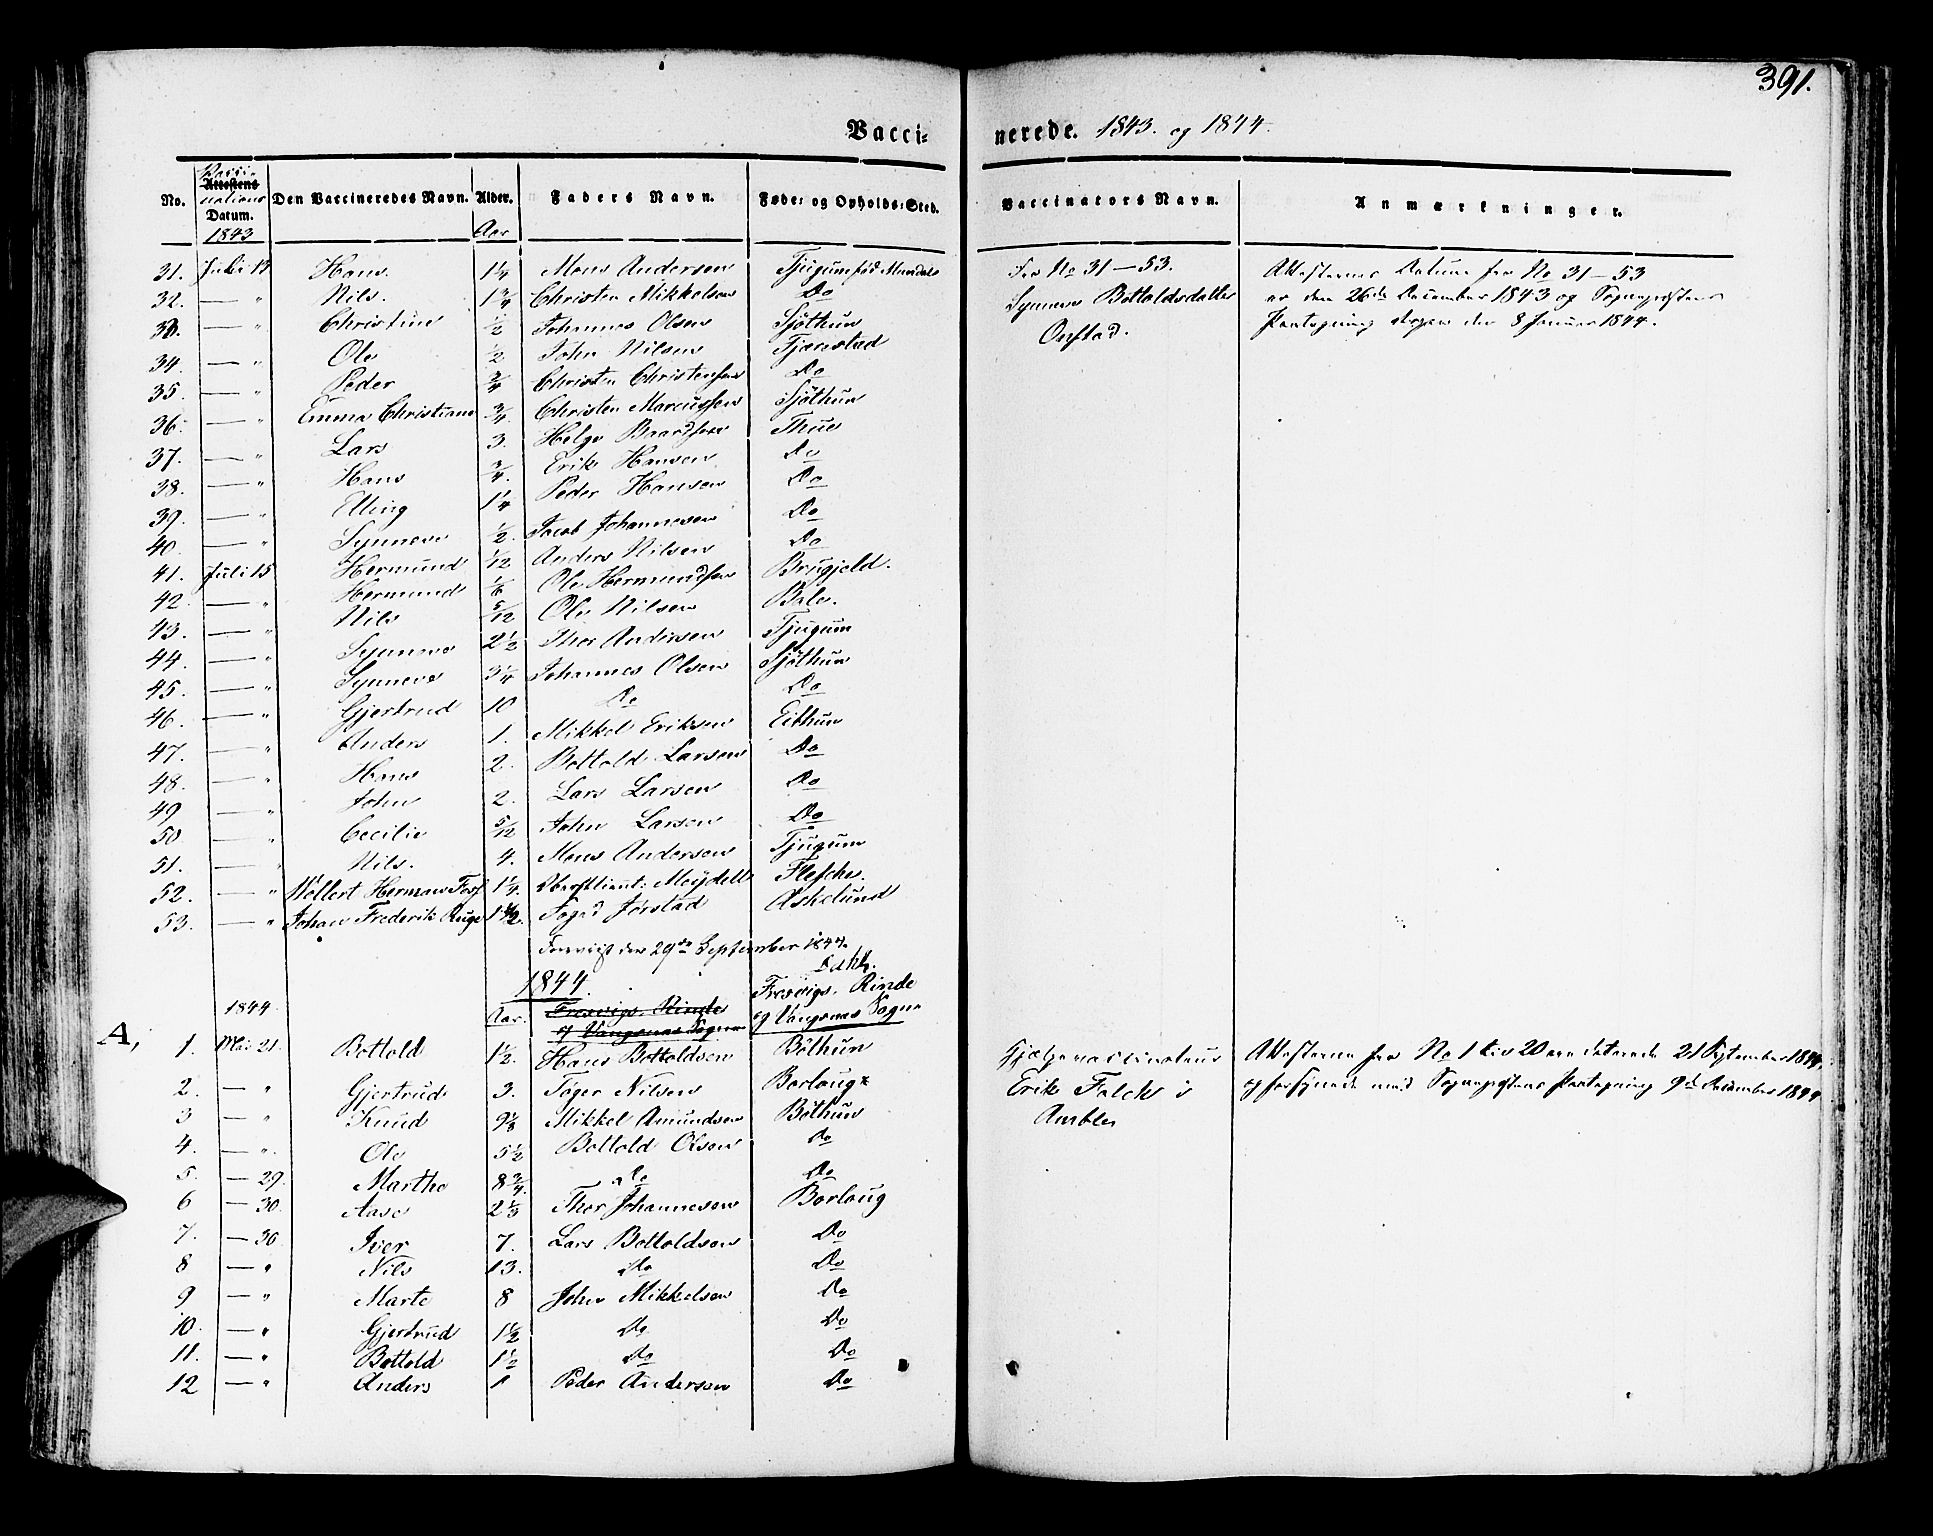 391.
Vacci- nerede. 1843. og 1844.
No. Attestens Vacci- nations Datum. 1843 Den Vaccineredes Navn. Alder. Aar Faders Navn. Føde- og Opholds-Sted. Vaccinators Navn. Anmærkninger.
31. Juli 14 Hans. 1 1/4 Mons Andersen Tjugum fød Mundals For No 31-53. Attesternes Datum for No 31-53
32. — " Nils. 1 3/4 Christen Mikkelsen Do Synneve Bottolfsdatter er den 26de December 1843 og Sogneprestens
33. — " Christine 1/2 Johannes Olsen Sjøthun Paategning den 8 Januar 1844.
34. — " Ole 1/2 John Nilsen Tjærestad
35. — " Peder 3/4 Christen Christensen Do
36. — " Emma Christiane 3/4 Christen Marcussen Sjøthun
37. — " Lars 3. Helge Baardsen Thue
38. — " Hans 3/4. Erik Hansen Do
39. — " Elling 1 1/4 Peder Hansen Do
40. — " Synneve 1/2. Jacob Johannesen Do
41. Juli 15 Hermund 1/12 Anders Nilsen Do
42. — " Hermund 1/6 Ole Hermundsen Brugjeld.
43. — " Nils 5/12 Ole Nilsen Bale.
44. — " Synneve 2 1/2 Thor Andersen Tjugum
45. — " Synneve 3 1/4 Johannes Olsen Sjøthun
46. — " Gjertrud 10 Do Do
47. — " Anders 1. Mikkel Eriksen Eithun
48. — " Hans 2. Bottold Larsen Do
49 — " John 2. Lars Larsen Do
50 — " Cecilie 5/12 John Larsen Do
51. — " Nils. 4. Mons Andersen Tjugum
52. — " Wollert Herman 1 1/4. Oberstlieut: Meydell Flesche.
53. — " Johan Frederik Ruge 1 1/2. Foged Jørstad Askelund
Foreviist den 29de September 1844.
1844.
1844 Aar. Fresvigs, Rinde og Vangsnæs Sogne Fresvigs, Rinde og Vangsnæs Sogne
A, 1. Mai 21. Bottold 1 1/2. Hans Bottoldsen Bøthun Hjælpevaccinateur Attesterne fra No 1 til 20 ere daterede 21 September 1844,
2. — " Gjertrud 3. Tøger Nilsen Borloug Erik Falck i og forsynede med Sogneprestens Paategning 9de December 1844
3 — " Knud 9 1/8 Mikkel Amundsen Bøthun Amble
4. — " Ole 5 1/2 Bottold Olsen Do
5. — 29. Marthe 8 3/4. Do Do
6 — 30. Aase 2 1/3 Thor Johannesen Borloug
7. — 30 Iver 7. Lars Bottoldsen Do
8 — " Nils 13. Do Do
9 — " Marte 8 John Mikkelsen Do
10. — " Gjertrud 1 1/2 Do Do
11. — " Bottold 1 1/2 Do Do
12 — " Anders 1 Peder Andersen Do